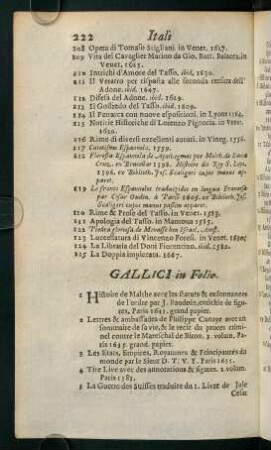 222 Itali
208 Opera di Tomaso Stigliani. in Venet. 1627.
209 Vita del Cavaglier Marino da Gio. Batt. Baiacca. in
Venet. 1625.
210 Intrichi d'Amore del Tasso. ibid. 1630.
211 Il Veratro per risposta alle seconda censura dell'
Adone. ibid. 1647.
212 Difesa del Adone. ibid. 1629.
213 Il Goffredo del Tasso. ibid. 1609.
214 Il Petrarca con nuove espositioni. in Lyon 1564.
215 Notitie Historiche di Lorenzo Pignoria. in Venet.
1620.
216 Rime di diversi excellenti autori. in Vineg. 1556.
217 Catecismo Espannolo. 1559.
Floresta Espannola de Apotegmas por Melch. de Santa
Cruz. en Brucellas 1598.
1596. ex Biblioth. Jos. Scaligeri cujus manus ap-
paret.
219 Le frases Espannolas traduzidas en lengua Francesa
par Cesar Oudin. à Paris 1605. ex Biblioth. Jos.
Scaligeri cujus manus passim apparet.
220 Rime & Prose del Tasso. in Venet. 1583.
221 Apologia del Tasso. in Mantoua 1585.
222 Piedra gloriosa de Menasseh ben Israel. Amst.
223 Lucerna
di Vincenzo Foresi. in Venet. 1630.
224 La Libraria del Doni Fiorentino. ibid. 1580.
225 La Doppia impiccata. 1667.
GALLICI in Folio.
1 Histoire de Malthe avec les statuts & ordonnances
de l'ordre par J. Baudoin, enrichie de figu-
res, Paris 1643. grand papier.
2 Lettres & ambassades de Philippe Canaye avec un
sommaire de sa vie, & le recit du procés crimi-
nel contre le Mareschal de Biron. 3. volum. Pa-
ris 1635. grand. papier.
3 Les Estats, Empires, Royaumes & Principautés du
monde par le Sieur D. T. V. Y. Paris 1635.
4 Tite Live avec des annotations & figures. 2. volum.
Paris 1583.
5 La Guerre des Suisses traduite du 1. Livre de Jule
Cesar